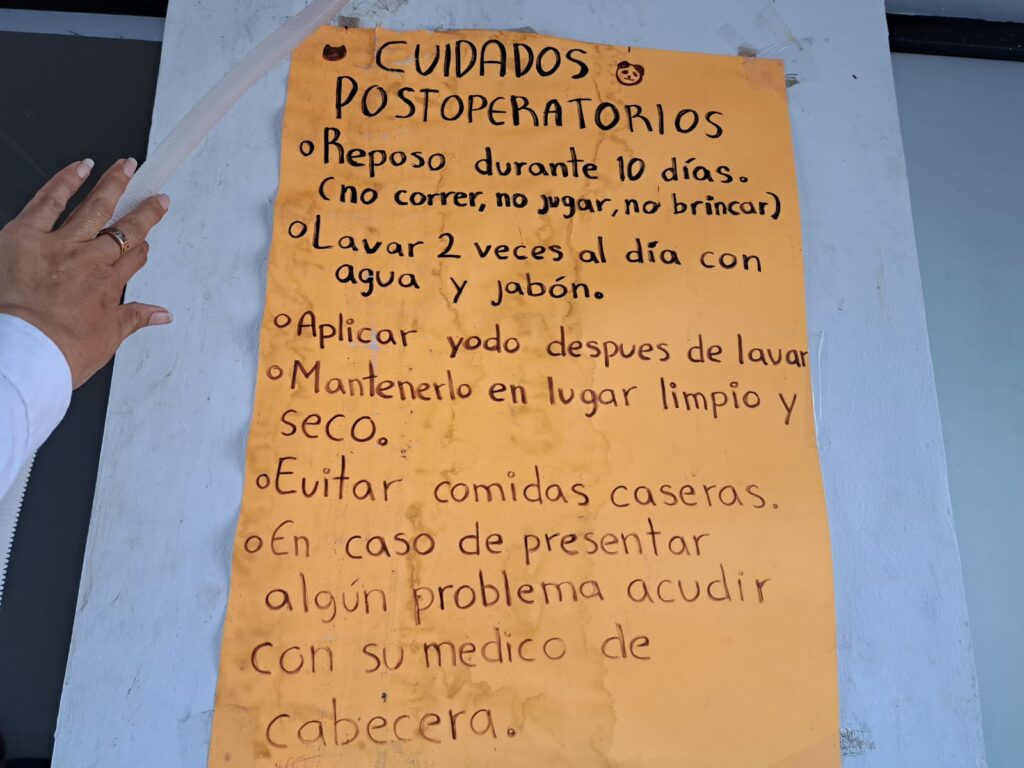 CUIDADOS
POSTOPERATORIOS
o Reposo durante 10 días.
(no correr, no jugar, no brincar)
o Lavar 2 veces al día con
agua y jabón.
o Aplicar yodo despues de lavar
o Mantenerlo en lugar limpio y
seco.
o Evitar comidas caseras.
o En caso de presentar
algún problema acudir
con su medico de
cabecera.